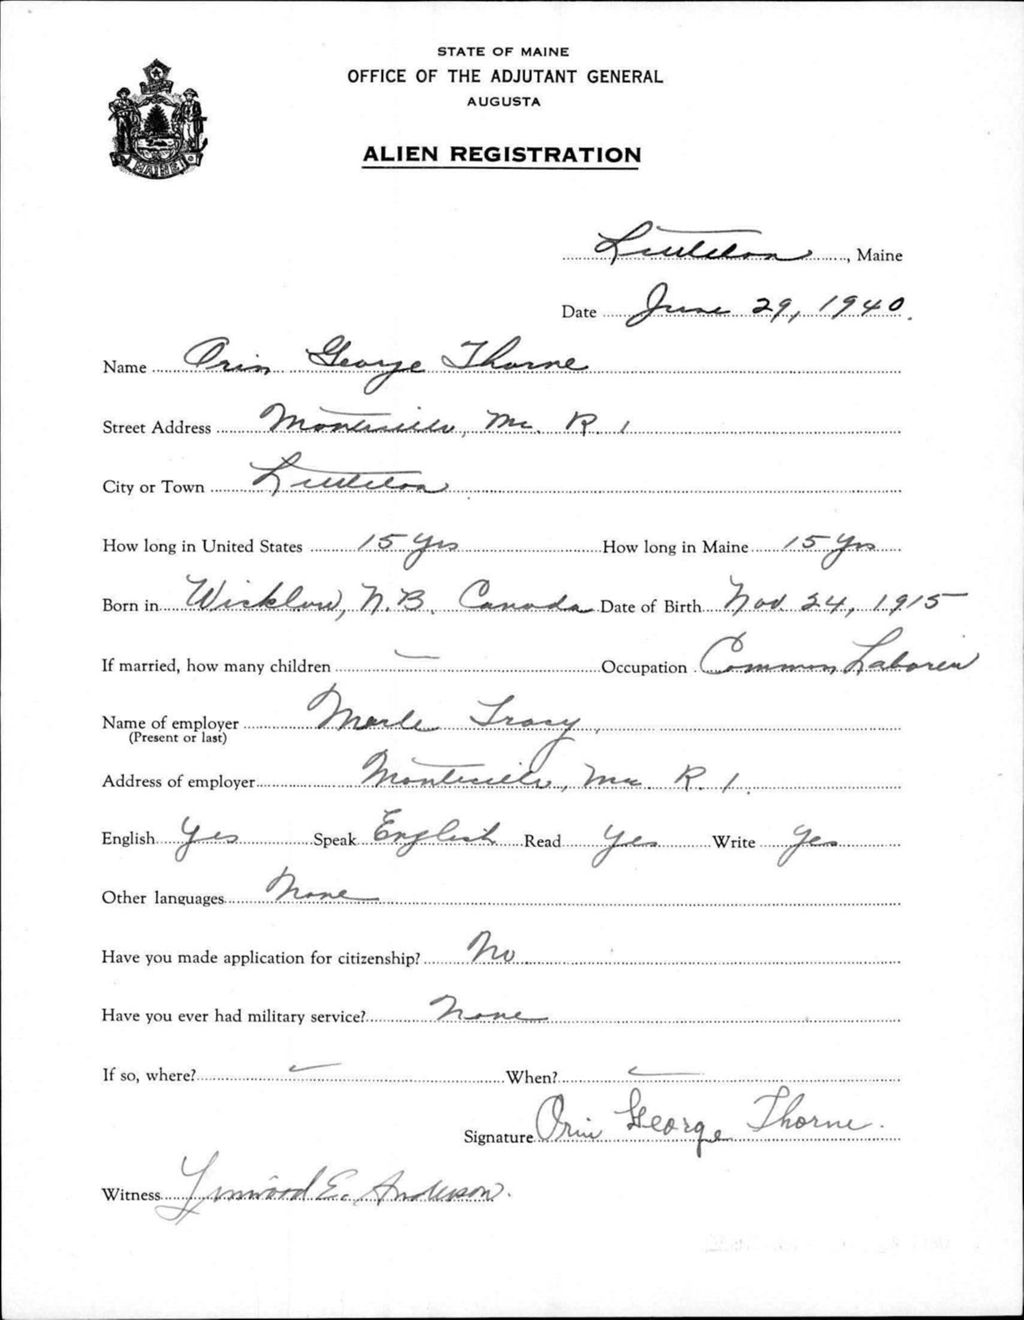 STATE OF MAINE
OFFICE OF THE ADJUTANT GENERAL
AUGUSTA
ALIEN REGISTRATION
MAINE
Littleton, Maine
Date June 29, 1940.
Name Orin George Thorne
Street Address Monticello, Me. R. 1
City or Town Littleton
How long in United States 15 Yrs How long in Maine 15 Yrs
Born in Wicklow, N.B. Canada Date of Birth Nov. 24, 1915
If married, how many children — Occupation Common Laborer
Name of employer Merle Tracy
(Present or last)
Address of employer Monticello, Me. R. 1.
English Yes Speak English Read Yes Write Yes
Other languages None
Have you made application for citizenship? No
Have you ever had military service? None
If so, where? — When? —
Signature Orin George Thorne.
Witness Linwood E. Anderson.